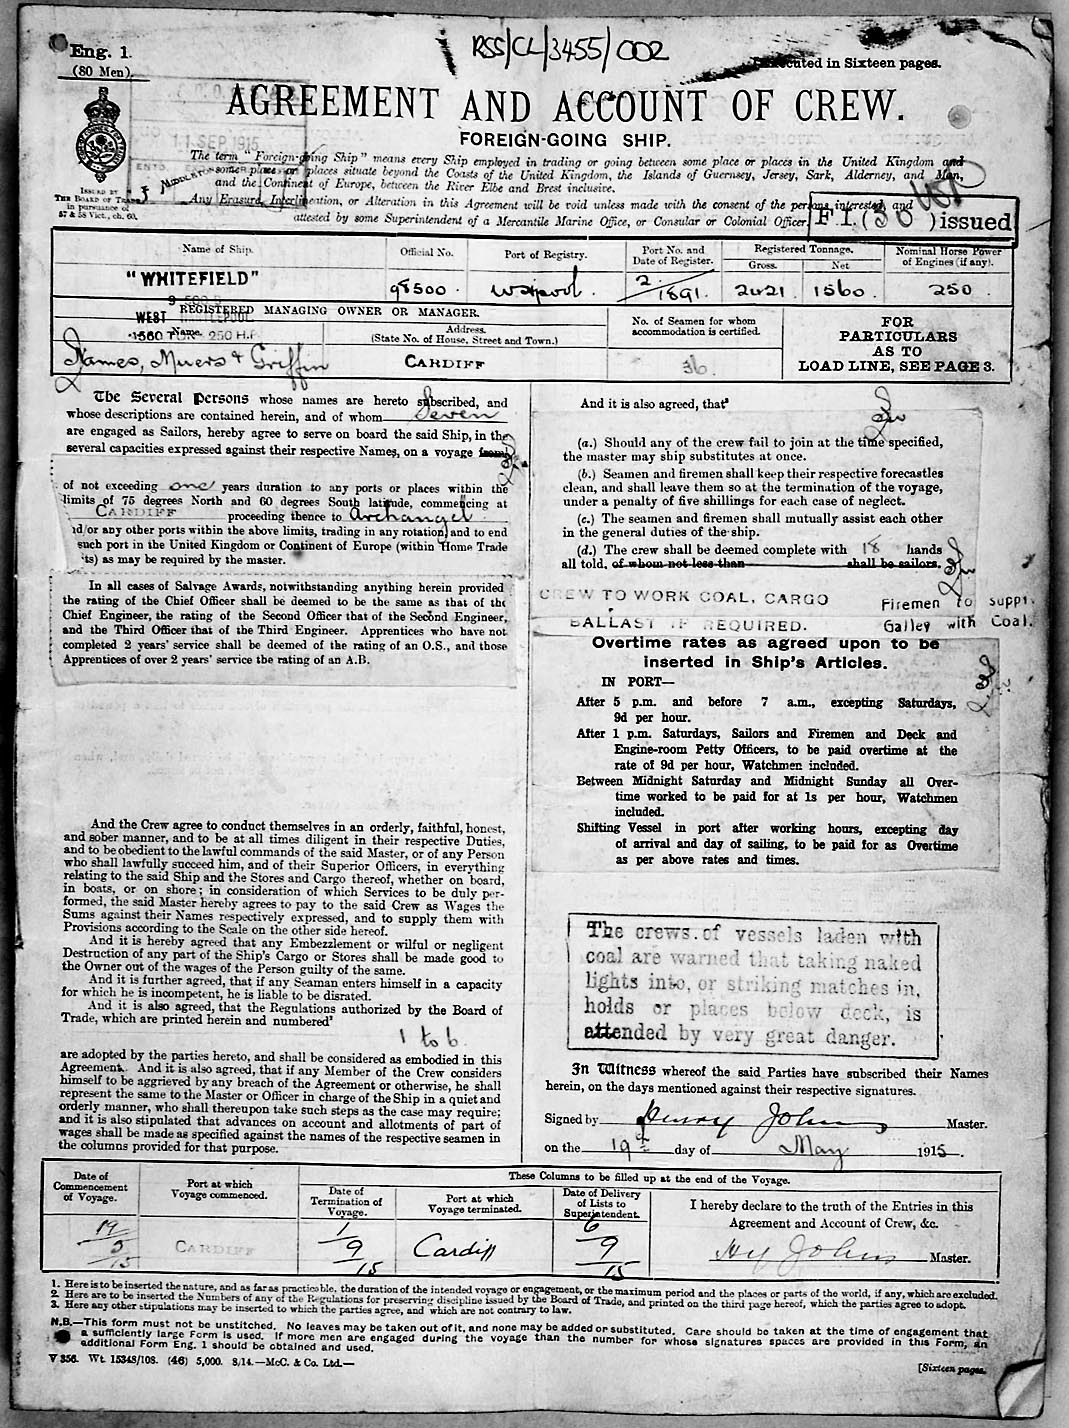 RSS/CL/3455/002
Eng. 1.
(80 Men).
Executed in Sixteen pages.
AGREEMENT AND ACCOUNT OF CREW.
FOREIGN-GOING SHIP.
11 SEP 1915
The term "Foreign-going Ship" means every Ship employed in trading or going between some place or places in the United Kingdom and
some place or places situate beyond the Coasts of the United Kingdom, the Islands of Guernsey, Jersey, Sark, Alderney, and Man,
and the Continent of Europe, between the River Elbe and Brest inclusive.
Any Erasure, Interlineation, or Alteration in this Agreement will be void unless made with the consent of the persons interested, and
attested by some Superintendent of a Mercantile Marine Office, or Consular or Colonial Officer.
ISSUED BY
THE BOARD OF TRADE
in pursuance of
57 & 58 Vict., ch. 60.
F I. ( ) issued
Name of Ship.
Official No.
Port of Registry.
Port No. and
Date of Register.
Registered Tonnage.
Gross.
Net
Nominal Horse Power
of Engines (if any).
"WHITEFIELD"
98500
W Hpool.
2/1891
2421
1560
250
WEST HARTLEPOOL
1560 TONS 250 H.P.
REGISTERED MANAGING OWNER OR MANAGER.
Name.
Address.
(State No. of House, Street and Town.)
No. of Seamen for whom
accommodation is certified.
FOR
PARTICULARS
AS TO
LOAD LINE, SEE PAGE 3.
James, Muers & Griffin
CARDIFF
36
The Several Persons whose names are hereto subscribed, and
whose descriptions are contained herein, and of whom Seven
are engaged as Sailors, hereby agree to serve on board the said Ship, in the
several capacities expressed against their respective Names, on a voyage from
of not exceeding one years duration to any ports or places within the
limits of 75 degrees North and 60 degrees South latitude, commencing at
CARDIFF proceeding thence to Archangel
nd/or any other ports within the above limits, trading in any rotation, and to end
such port in the United Kingdom or Continent of Europe (within Home Trade
ts) as may be required by the master.
In all cases of Salvage Awards, notwithstanding anything herein provided
the rating of the Chief Officer shall be deemed to be the same as that of the
Chief Engineer, the rating of the Second Officer that of the Second Engineer,
and the Third Officer that of the Third Engineer. Apprentices who have not
completed 2 years' service shall be deemed of the rating of an O.S., and those
Apprentices of over 2 years' service the rating of an A.B.
And the Crew agree to conduct themselves in an orderly, faithful, honest,
and sober manner, and to be at all times diligent in their respective Duties,
and to be obedient to the lawful commands of the said Master, or of any Person
who shall lawfully succeed him, and of their Superior Officers, in everything
relating to the said Ship and the Stores and Cargo thereof, whether on board,
in boats, or on shore; in consideration of which Services to be duly per-
formed, the said Master hereby agrees to pay to the said Crew as Wages the
Sums against their Names respectively expressed, and to supply them with
Provisions according to the Scale on the other side hereof.
And it is hereby agreed that any Embezzlement or wilful or negligent
Destruction of any part of the Ship's Cargo or Stores shall be made good to
the Owner out of the wages of the Person guilty of the same.
And it is further agreed, that if any Seaman enters himself in a capacity
for which he is incompetent, he is liable to be disrated.
And it is also agreed, that the Regulations authorized by the Board of
Trade, which are printed herein and numbered²
1 to 6
are adopted by the parties hereto, and shall be considered as embodied in this
Agreement. And it is also agreed, that if any Member of the Crew considers
himself to be aggrieved by any breach of the Agreement or otherwise, he shall
represent the same to the Master or Officer in charge of the Ship in a quiet and
orderly manner, who shall thereupon take such steps as the case may require;
and it is also stipulated that advances on account and allotments of part of
wages shall be made as specified against the names of the respective seamen in
the columns provided for that purpose.
And it is also agreed, that³
(a.) Should any of the crew fail to join at the time specified,
the master may ship substitutes at once.
(b.) Seamen and firemen shall keep their respective forecastles
clean, and shall leave them so at the termination of the voyage,
under a penalty of five shillings for each case of neglect.
(c.) The seamen and firemen shall mutually assist each other
in the general duties of the ship.
(d.) The crew shall be deemed complete with 18 hands
all told, of whom not less than shall be sailors.
CREW TO WORK COAL, CARGO
BALLAST IF REQUIRED.
Firemen to suppl.
Galley with Coal.
Overtime rates as agreed upon to be
inserted in Ship's Articles.
IN PORT—
After 5 p.m. and before 7 a.m., excepting Saturdays,
9d per hour.
After 1 p.m. Saturdays, Sailors and Firemen and Deck and
Engine-room Petty Officers, to be paid overtime at the
rate of 9d per hour, Watchmen included.
Between Midnight Saturday and Midnight Sunday all Over-
time worked to be paid for at 1s per hour, Watchmen
included.
Shifting Vessel in port after working hours, excepting day
of arrival and day of sailing, to be paid for as Overtime
as per above rates and times.
The crews of vessels laden with
coal are warned that taking naked
lights into, or striking matches in,
holds or places below deck, is
attended by very great danger.
In Witness whereof the said Parties have subscribed their Names
herein, on the days mentioned against their respective signatures.
Signed by Henry Johns Master.
on the 19th day of May 1915.
Date of
Commencement
of Voyage.
Port at which
Voyage commenced.
These Columns to be filled up at the end of the Voyage.
Date of
Termination of
Voyage.
Port at which
Voyage terminated.
Date of Delivery
of Lists to
Superintendent.
I hereby declare to the truth of the Entries in this
Agreement and Account of Crew, &c.
19/5/15
CARDIFF
1/9/15
Cardiff
6/9/15
Hy Johns Master.
1. Here is to be inserted the nature, and as far as practicable, the duration of the intended voyage or engagement, or the maximum period and the places or parts of the world, if any, which are excluded.
2. Here are to be inserted the Numbers of any of the Regulations for preserving discipline issued by the Board of Trade, and printed on the third page hereof, which the parties agree to adopt.
3. Here any other stipulations may be inserted to which the parties agree, and which are not contrary to law.
N.B.—This form must not be unstitched. No leaves may be taken out of it, and none may be added or substituted. Care should be taken at the time of engagement that
a sufficiently large Form is used. If more men are engaged during the voyage than the number for whose signatures spaces are provided in this Form, an
additional Form Eng. 1 should be obtained and used.
V 356. Wt. 15348/108. (46) 5,000. 8/14.—McC. & Co. Ltd.—
[Sixteen pages.